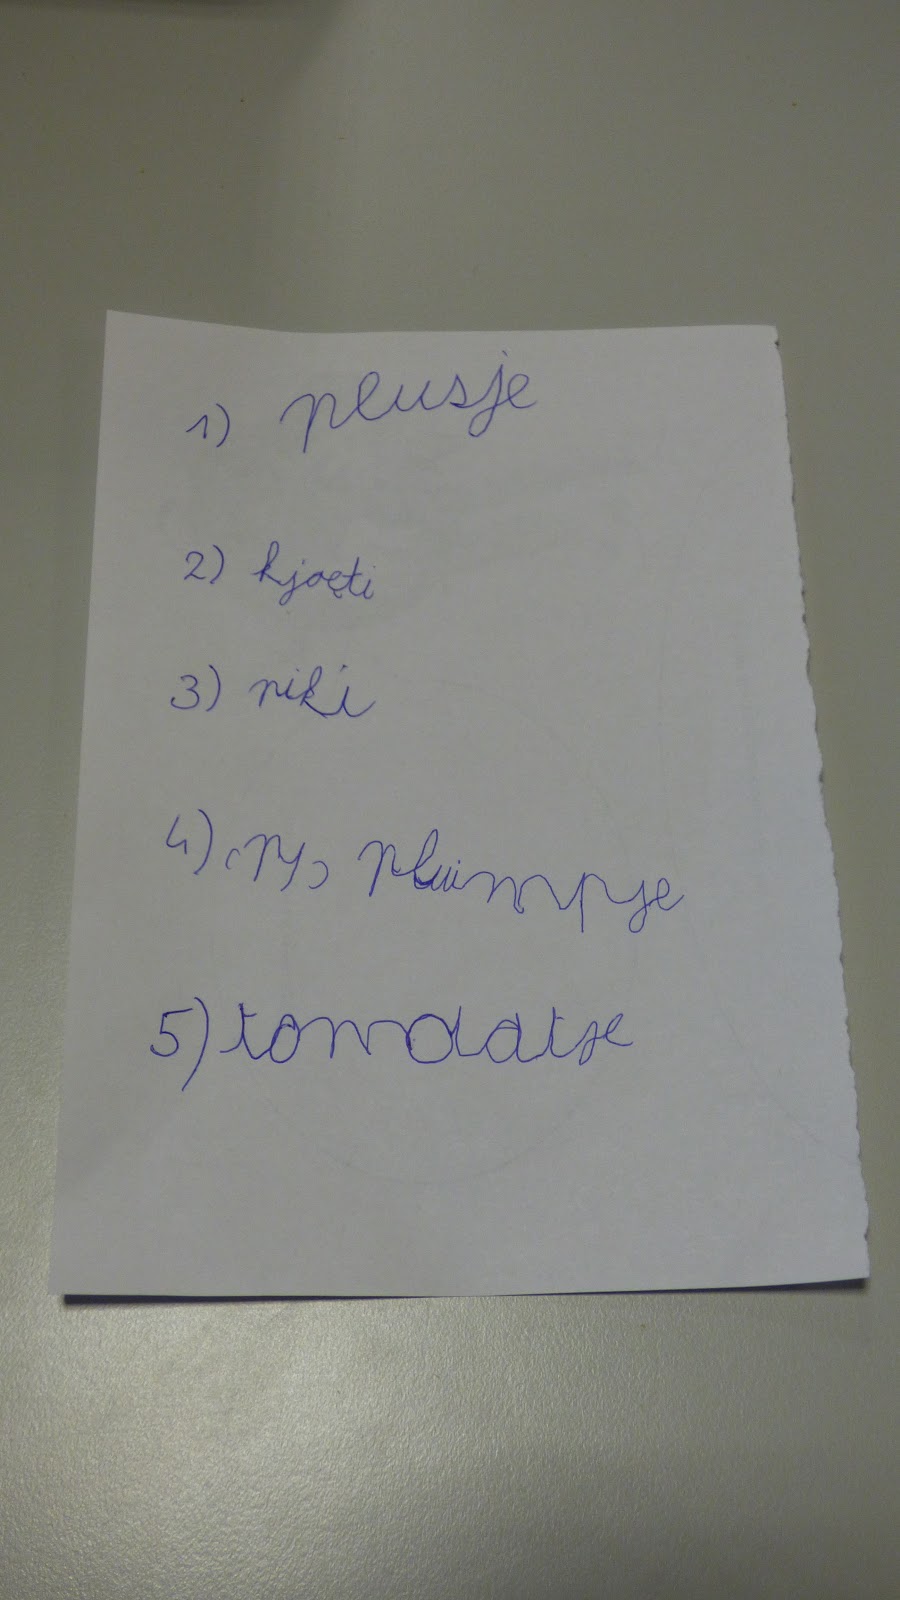 1) plusje
2) kjoeti
3) niki
4) pluimpje
5) tomaatje